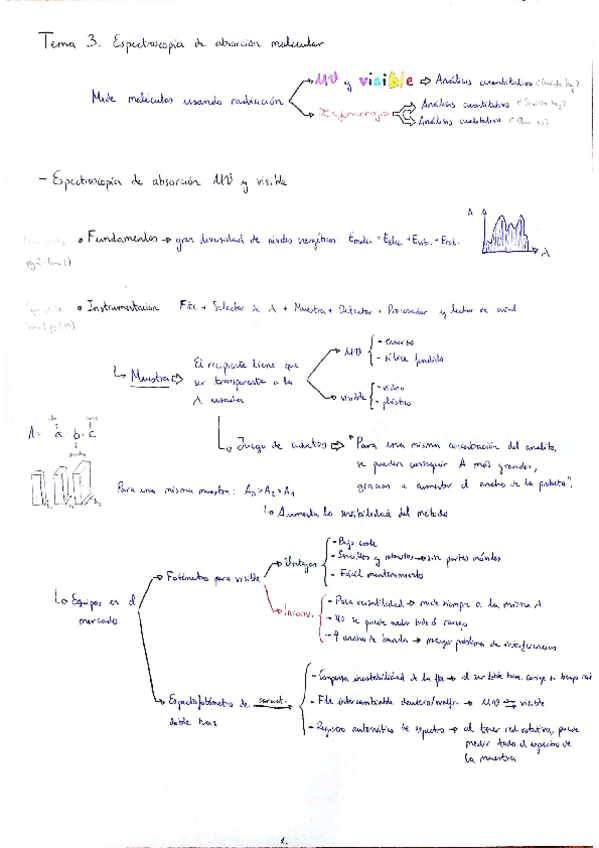 Tema 3. Espectroscopía de absorción molecular
Mide moléculas usando radiación
UV y visible ⇒ Análisis cuantitativo ¿Cuánto hay?
Infrarrojo
Análisis cuantitativo ¿Cuánto hay?
Análisis cualitativo ¿Qué es?
- Espectroscopía de absorción UV y visible
• Fundamentos → gran diversidad de niveles energéticos: Emolec = Eelec + Evibr. + Erot.
A
λ
• Instrumentación Fte + Selector de λ + Muestra + Detector + Procesador y lector de señal
Muestra ⇒ El recipiente tiene que
ser transparente a la
λ usada
UV
- cuarzo
- sílice fundida
visible
- vidrio
- plástico
A = a · b · c
Juego de cubetas ⇒ "Para una misma concentración del analito,
se pueden conseguir A más grandes,
gracias a aumentar el ancho de la cubeta".
Para una misma muestra: A3 > A2 > A1
Aumenta la sensibilidad del método
Equipos en el
mercado
Fotómetro para visible
Ventajas
- Bajo coste
- Sencillos y robustos → sin partes móviles
- Fácil mantenimiento
Inconv.
- Poca versatilidad → mide siempre a la misma λ
- No se puede medir todo el rango
- ↑ ancho de banda → mayor problema de interferencias
Espectrofotómetro de
doble haz
- Compensa inestabilidad de la fte → al ser doble haz, corrige a tiempo real
- Fte intercambiable deuterio/wolfr. → UV ⇆ visible
- Registro automático de espectro → al tener red rotativa, puede
medir todo el espectro de
la muestra
1.